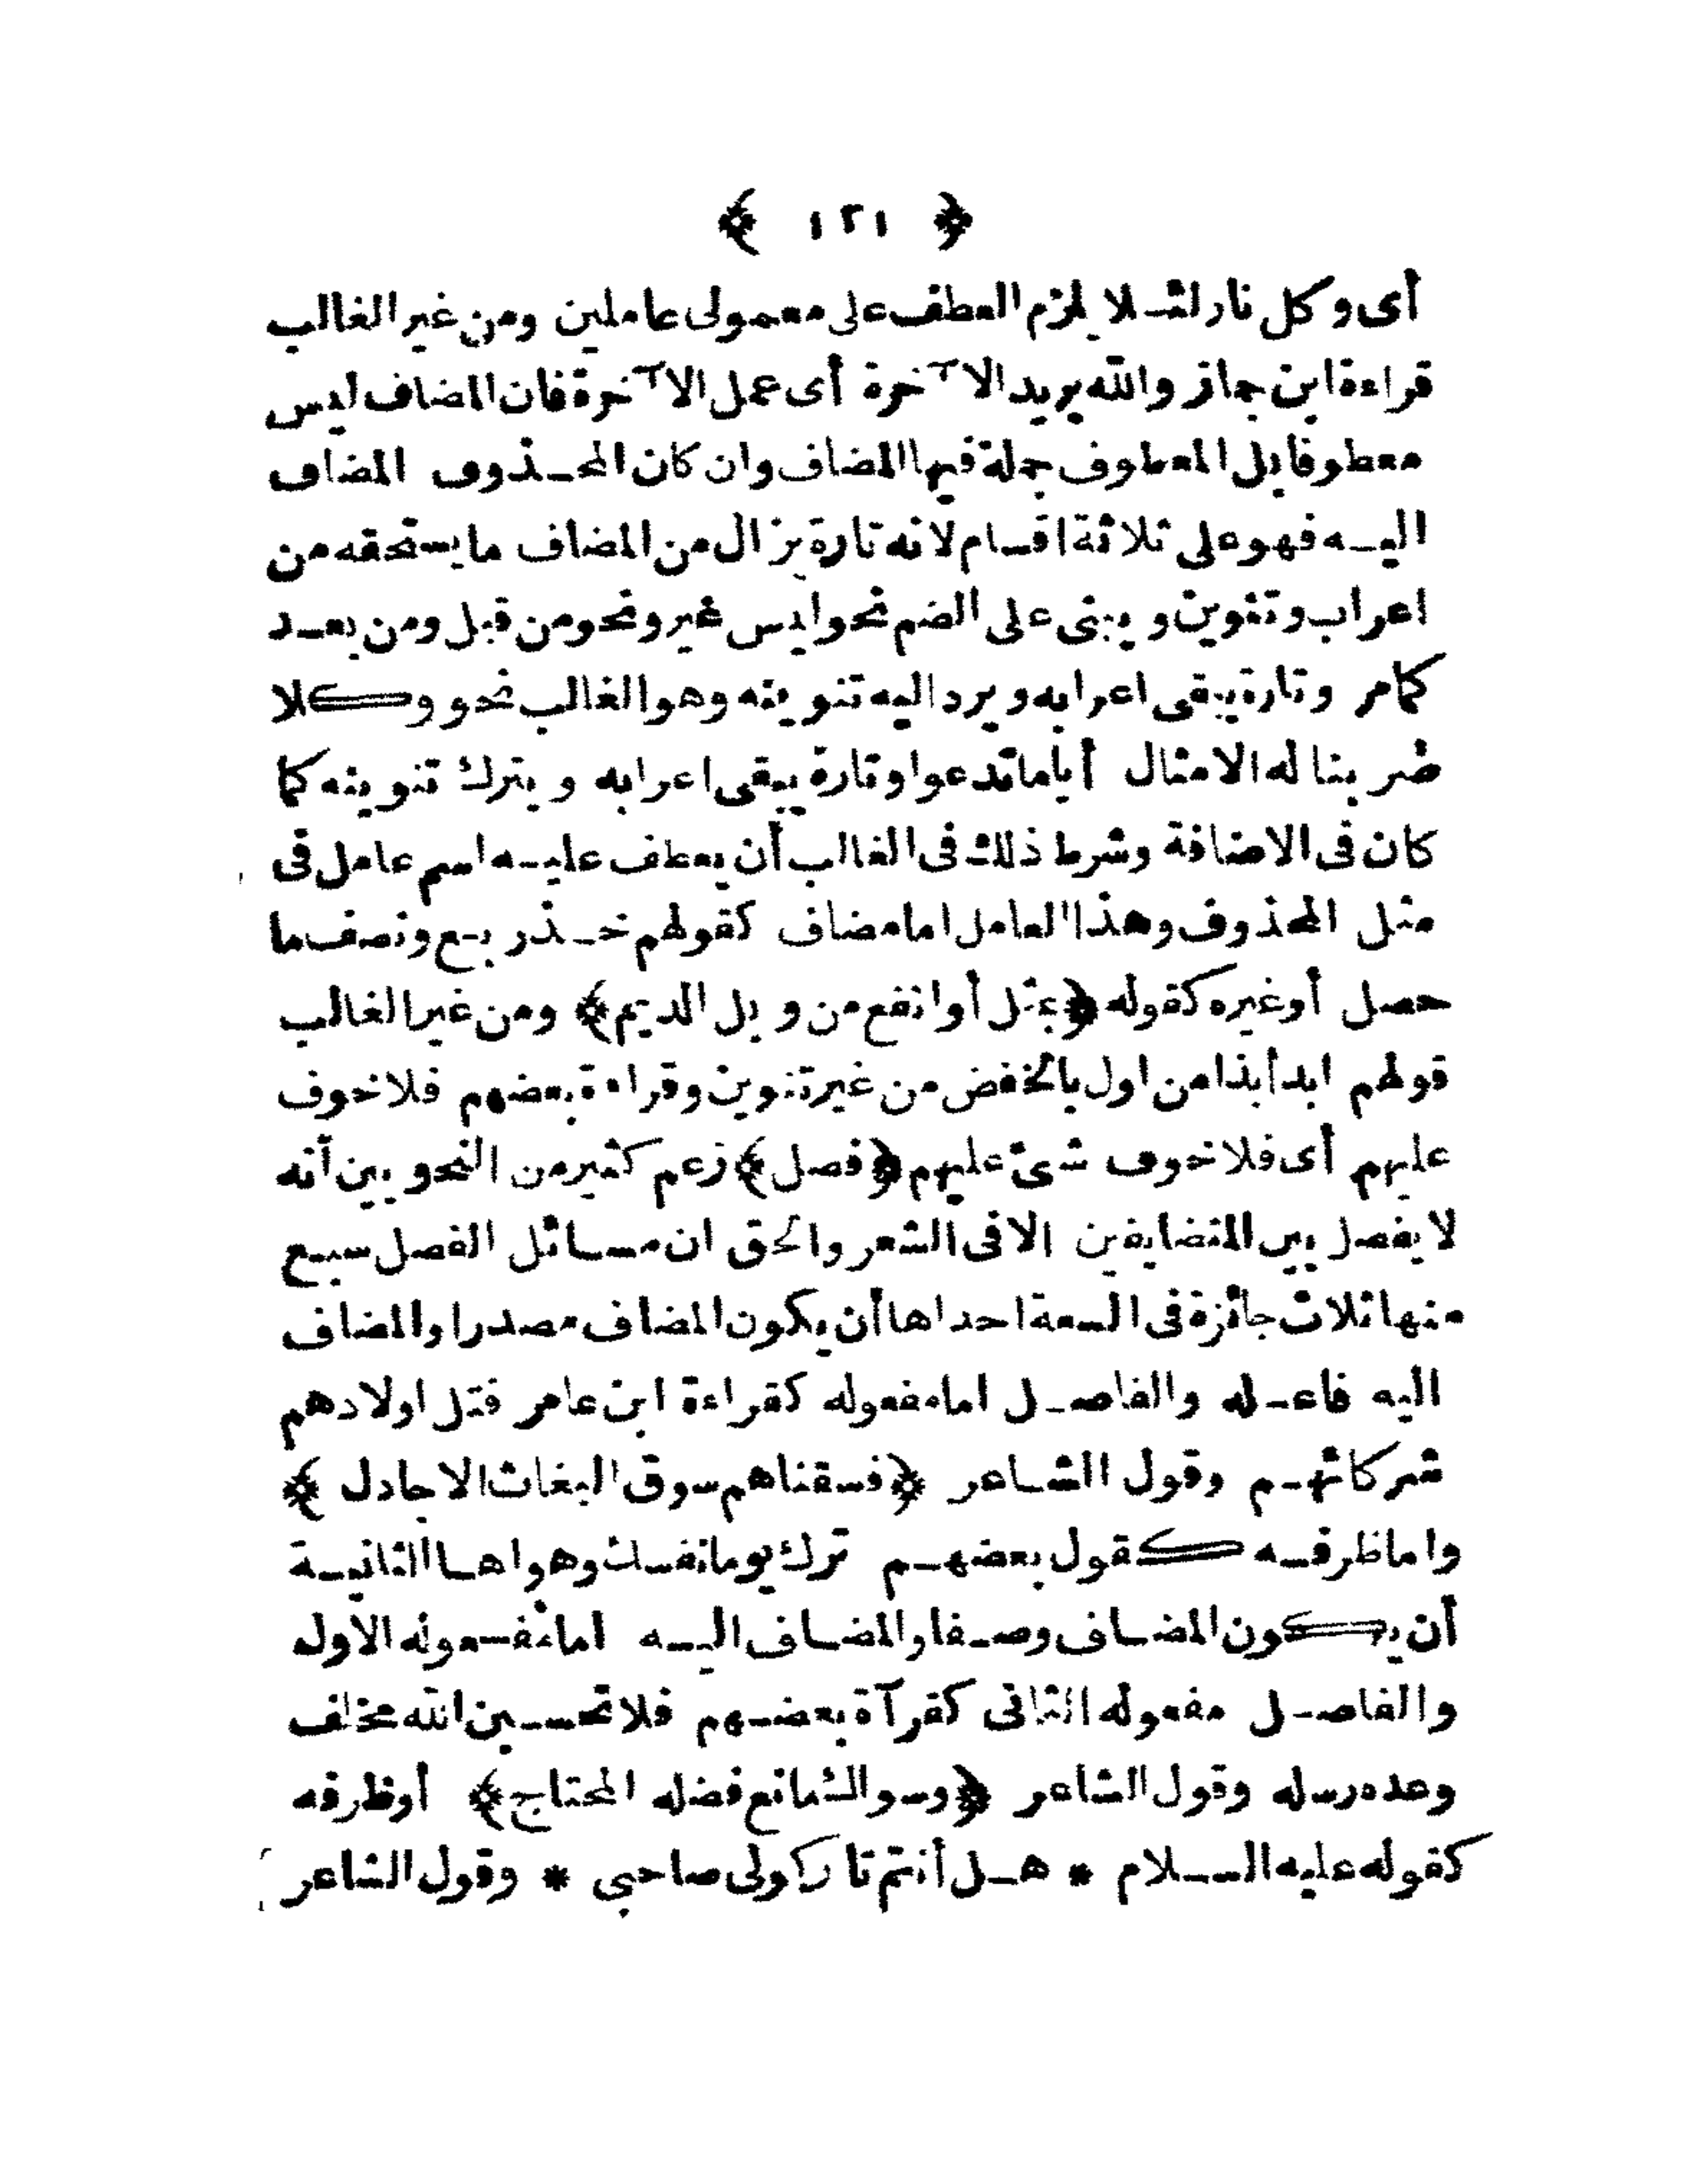 ﴿ ١٢١ ﴾
أى وكل نار لئلا يلزم العطف على معمولى عاملين ومن غير الغالب
قراءة ابن جماز والله يريد الآخرة أى عمل الآخرة فان المضاف ليس
معطوفا بل المعطوف جملة فيها المضاف وان كان المحذوف المضاف
اليه فهو على ثلاثة اقسام لانه تارة يزال من المضاف ما يستحقه من
اعراب وتنوين ويبنى على الضم نحو ليس غير ونحو من قبل ومن بعد
كما مر وتارة يبقى اعرابه ويرد اليه تنوينه وهو الغالب نحو وكلا
ضربنا له الامثال أياما تدعوا وتارة يبقى اعرابه ويترك تنوينه كما
كان فى الاضافة وشرط ذلك فى الغالب أن يعطف عليه اسم عامل فى
مثل المحذوف وهذا العامل اما مضاف كقولهم خذ ربع ونصف ما
حصل أو غيره كقوله ﴿بمثل أو انفع من وبل الديم﴾ ومن غير الغالب
قولهم ابدأ بذا من اول بالخفض من غير تنوين وقراءة بعضهم فلا خوف
عليهم أى فلا خوف شئ عليهم ﴿فصل﴾ زعم كثير من النحويين أنه
لا يفصل بين المتضايفين الا فى الشعر والحق ان مسائل الفصل سبع
منها ثلاث جائزة فى السعة احداها أن يكون المضاف مصدرا والمضاف
اليه فاعله والفاصل اما مفعوله كقراءة ابن عامر قتل اولادهم
شركائهم وقول الشاعر ﴿فسقناهم سوق البغاث الاجادل﴾
واما ظرفه كقول بعضهم ترك يوما نفسك وهواها الثانية
أن يكون المضاف وصفا والمضاف اليه اما مفعوله الاول
والفاصل مفعوله الثانى كقرآة بعضهم فلا تحسبن الله مخلف
وعده رسله وقول الشاعر ﴿وسواك مانع فضله المحتاج﴾ أو ظرفه
كقوله عليه السلام * هل أنتم تاركولى صاحبى * وقول الشاعر